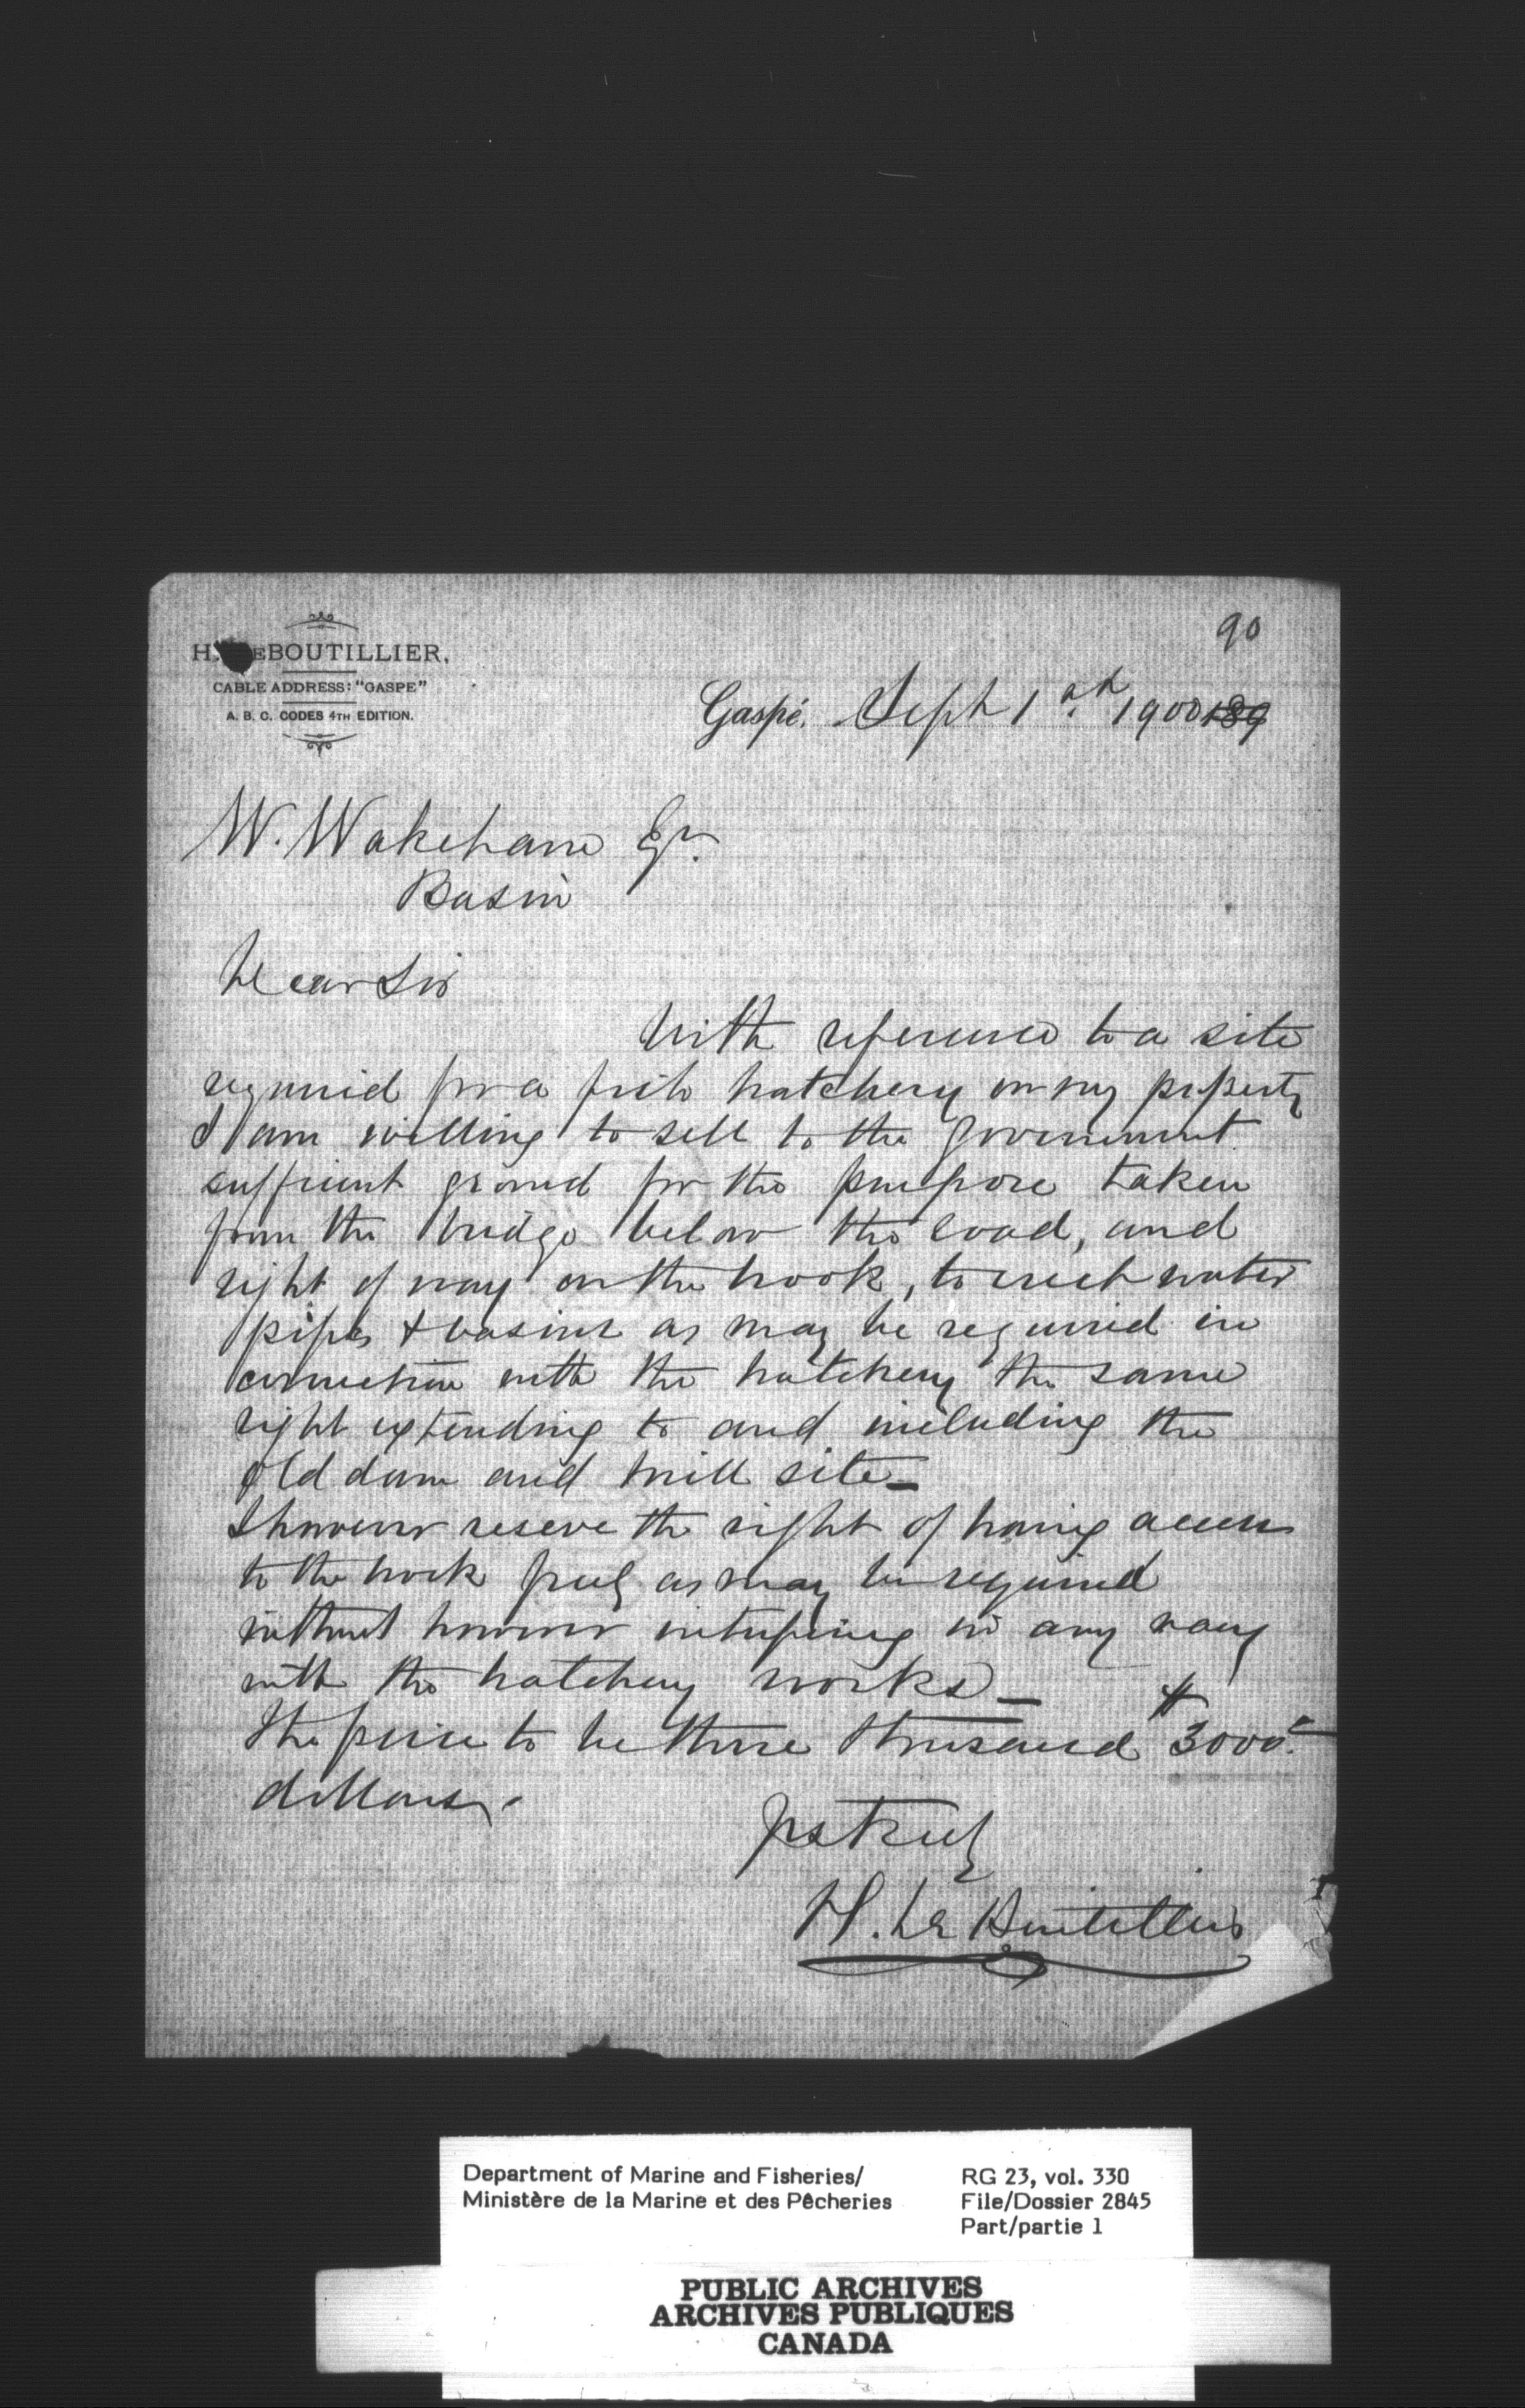 90
H. LeBOUTILLIER,
CABLE ADDRESS: "GASPE"
A. B. C. CODES 4TH EDITION.
Gaspé, Sept 1st 1900 189
W. Wakeham Esqr.
Basin
Dear Sir
With reference to a site
required for a fish hatchery on my property
I am willing to sell to the Government
sufficient ground for the purpose taken
from the bridge below the road, and
right of way on the brook, to erect water
pipes & basins as may be required in
connection with the hatchery the same
right extending to and including the
old dam and mill site_
I however reserve the right of having access
to the brook freely as may be required
without however interfering in any way
with the hatchery works_
The price to be three thousand $3000.-
dollars.
Yrs truly
H. Le Boutillier
Department of Marine and Fisheries/
Ministère de la Marine et des Pêcheries
RG 23, vol. 330
File/Dossier 2845
Part/partie 1
PUBLIC ARCHIVES
ARCHIVES PUBLIQUES
CANADA